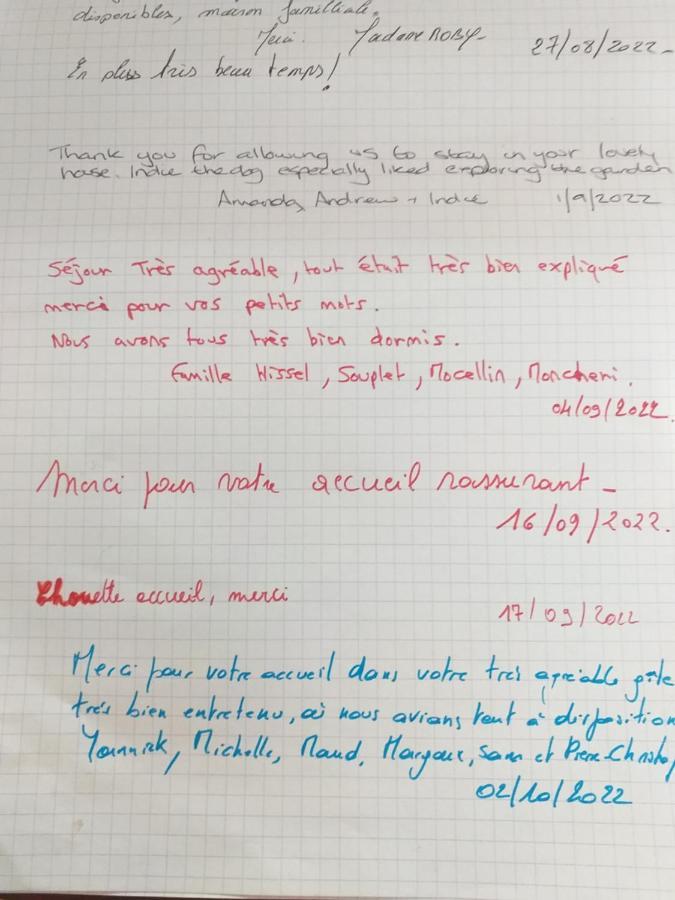 disponibles, maison familliale.
Merci. Madame ROBY-
27/08/2022-
En plus très beau temps!
Thank you for allowing us to stay in your lovely
house. Indie the dog especially liked exploring the garden
Amanda, Andrew + Indie 1/9/2022
Séjour Très agréable, tout était très bien expliqué
merci pour vos petits mots.
Nous avons tous très bien dormis.
Famille Hissel, Souplet, Mocellin, Moncheri.
04/09/2022.
Merci pour votre accueil rassurant -
16/09/2022.
Chouette accueil, merci
17/09/2022
Merci pour votre accueil dans votre très agréable gîte
très bien entretenu, où nous avions tout à disposition
Yannick, Michelle, Maud, Margaux, Sam et Pierre-Christo
02/10/2022